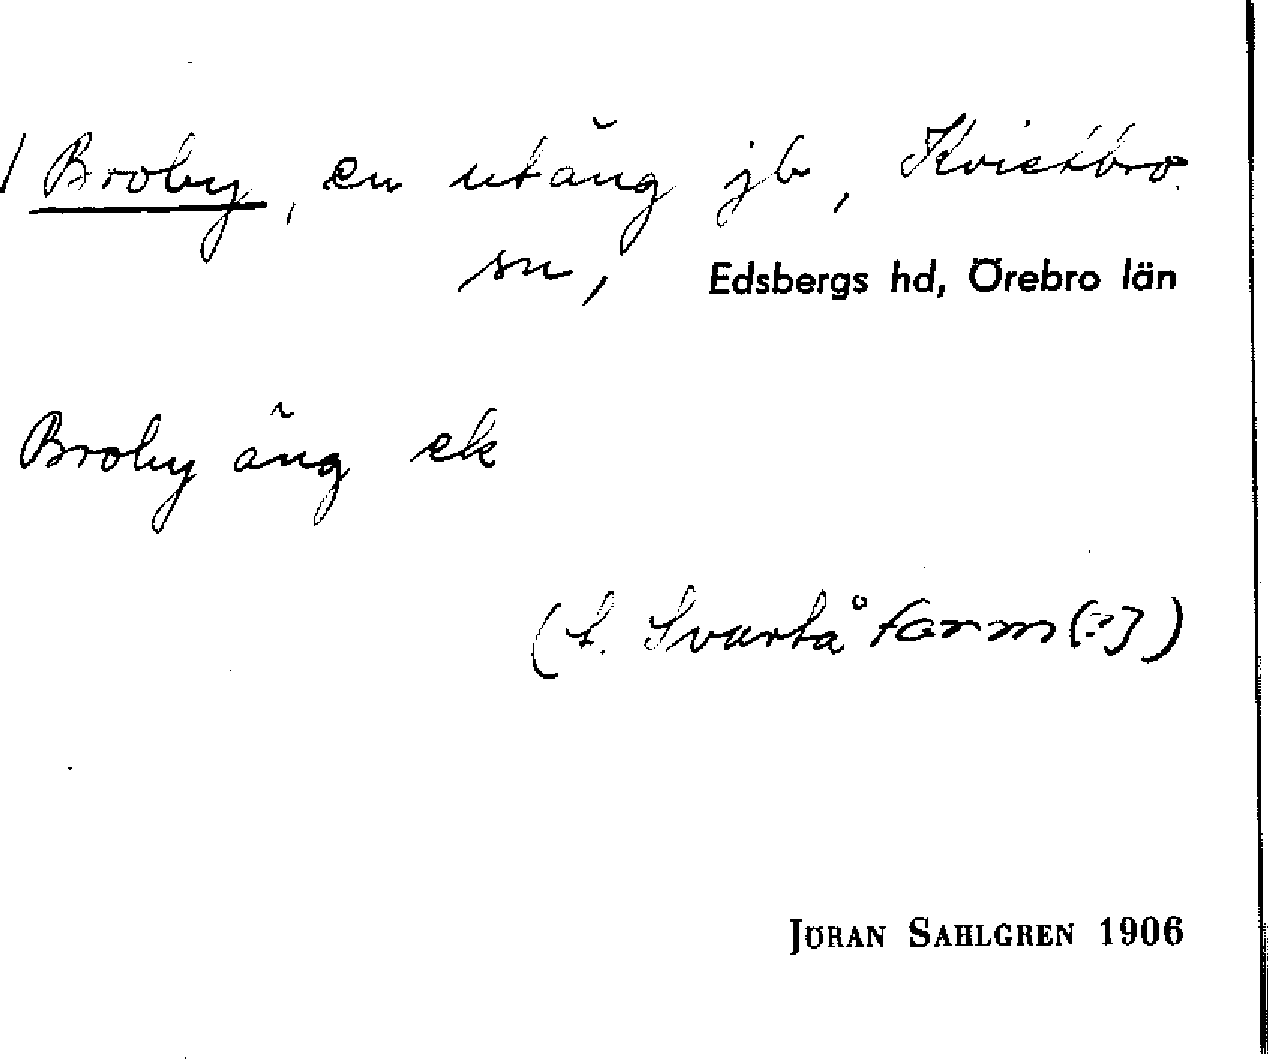 / Broby, en utäng jb, Kvistbro
sn, Edsbergs hd, Örebro län
Broby äng ek
(t. Svartå form(?))
JÖRAN SAHLGREN 1906